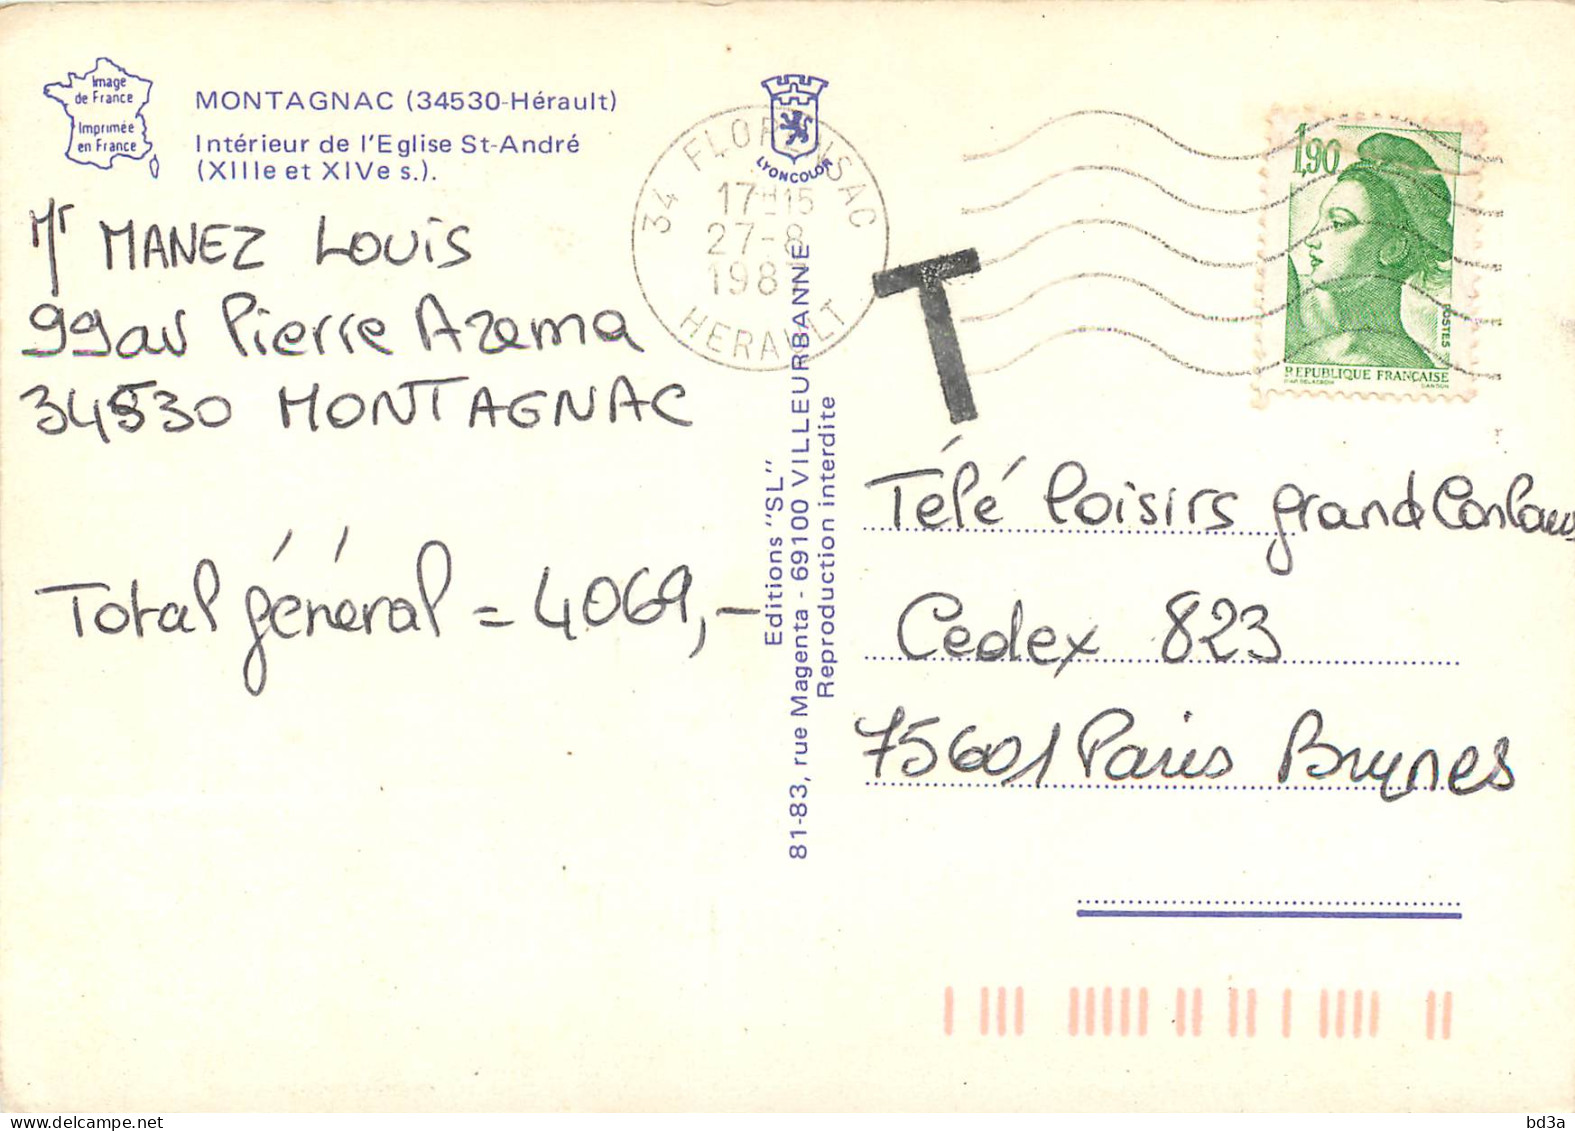 Image
de France
Imprimée
en France
MONTAGNAC (34530-Hérault)
Intérieur de l'Eglise St-André
(XIIIe et XIVe s.).
Mr MANEZ Louis
99 av Pierre Azema
34530 MONTAGNAC
Total général = 4069,-
LYONCOLOR
Editions "SL"
81-83, rue Magenta - 69100 VILLEURBANNE
Reproduction interdite
34 FLORENSAC
17H15
27-8
198
HERAULT
T
1,90
POSTES
REPUBLIQUE FRANÇAISE
Télé Loisirs grand
Cedex 823
75601 Paris Brunes
delcampe.net
bd3a